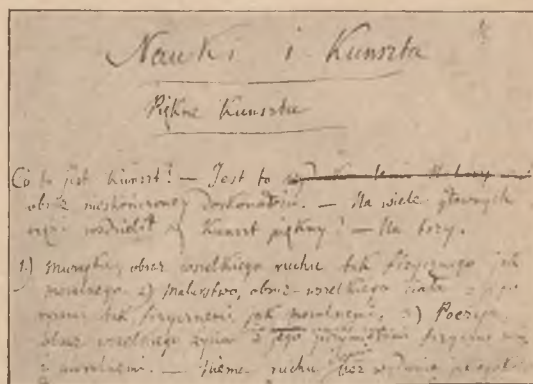 Nauki i Kunszta
Piękne Kunszta
Co to jest kunszt? — Jest to
obraz nieskończonej doskonałości. — Na wiele głównych
części wydzielił się Kunszt piękny? — Na trzy.
1.) Muzyka, obraz wszelkiego ruchu tak fizycznego jak
moralnego. 2) Malarstwo, obraz wszelkiego ciała z jego
tak fizycznemi jak moralnemi. 3) Poezya,
obraz wszelkiego życia z jego przymiotami fizycznemi
i moralnemi. — ruchu bez